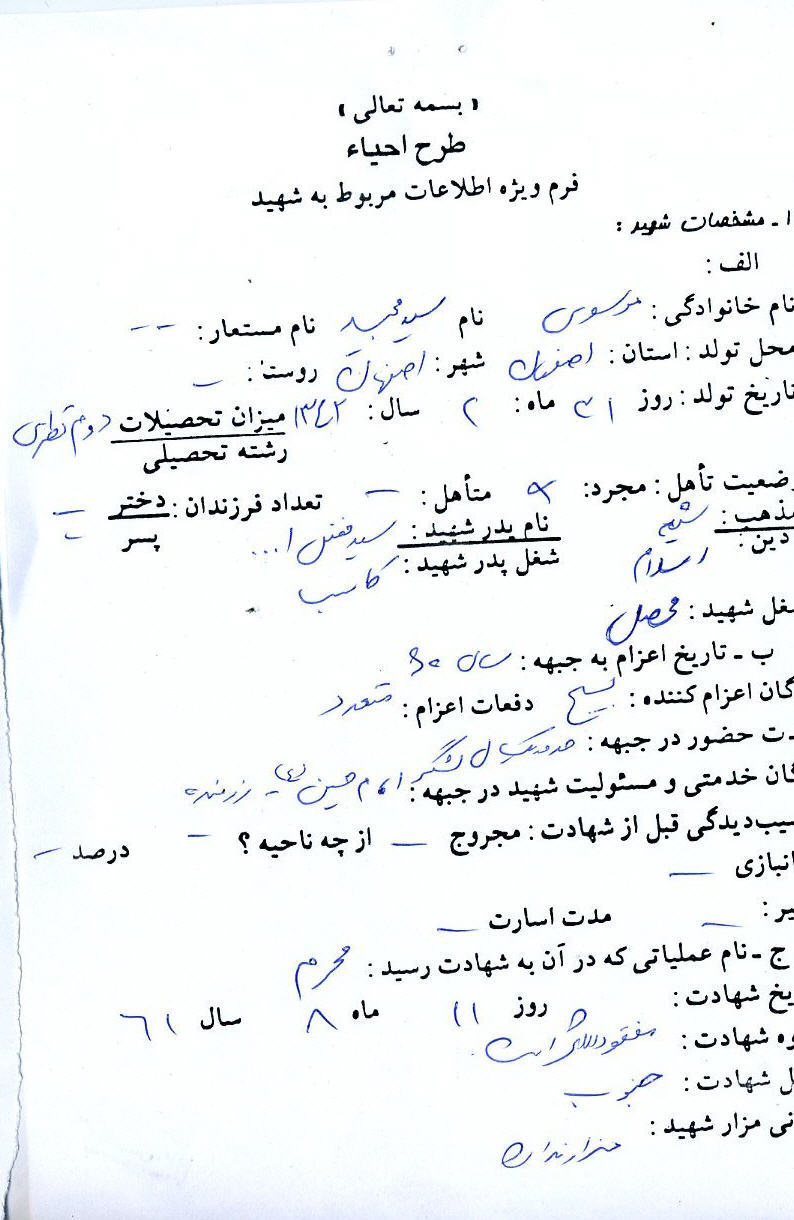 « بسمه تعالی »
طرح احیاء
فرم ویژه اطلاعات مربوط به شهید
۱ ـ مشخصات شهید :
الف :
نام خانوادگی : موسوی نام سید مجید نام مستعار : --
محل تولد : استان : اصفهان شهر : اصفهان روستا : –
تاریخ تولد : روز ۳۱ ماه : ۲ سال : ۱۳۴۲ میزان تحصیلات دوم نظری
رشته تحصیلی
وضعیت تأهل : مجرد : × متأهل : – تعداد فرزندان : دختر –
پسر –
مذهب : شیعه نام پدر شهید : سید فضل ا...
دین : اسلام شغل پدر شهید : کاسب
شغل شهید : محصل
ب ـ تاریخ اعزام به جبهه : سال ۶۰
گان اعزام کننده : بسیج دفعات اعزام : متعدد
ت حضور در جبهه : حدود یکسال
گان خدمتی و مسئولیت شهید در جبهه : لشگر امام حسین (ع) - رزمنده
سیب‌دیدگی قبل از شهادت : مجروح – از چه ناحیه ؟ – درصد –
انبازی –
یر : – مدت اسارت –
ج ـ نام عملیاتی که در آن به شهادت رسید : محرم
یخ شهادت : روز ۱۱ ماه ۸ سال ۶۱
وه شهادت : مفقودالاثر است
ل شهادت : جنوب
نی مزار شهید : مزار ندارد